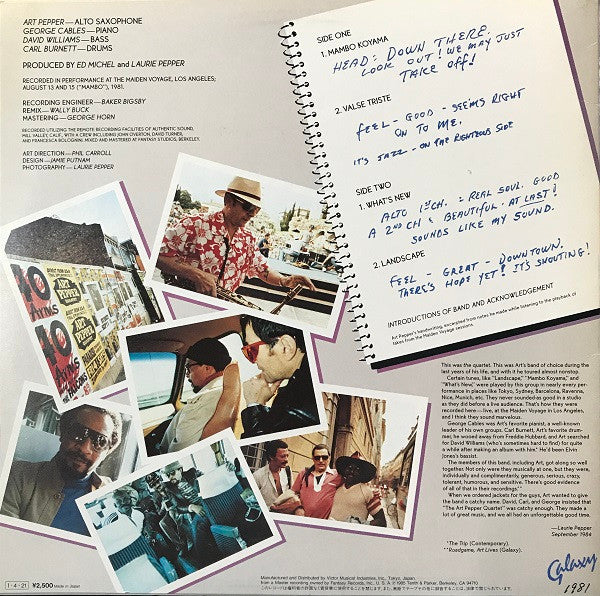 ART PEPPER—ALTO SAXOPHONE
GEORGE CABLES—PIANO
DAVID WILLIAMS—BASS
CARL BURNETT—DRUMS
PRODUCED BY ED MICHEL and LAURIE PEPPER
RECORDED IN PERFORMANCE AT THE MAIDEN VOYAGE, LOS ANGELES;
AUGUST 13 AND 15 ("MAMBO"), 1981.
RECORDING ENGINEER—BAKER BIGSBY
REMIX—WALLY BUCK
MASTERING—GEORGE HORN
RECORDED UTILIZING THE REMOTE RECORDING FACILITIES OF AUTHENTIC SOUND,
MILL VALLEY, CALIF., WITH A CREW INCLUDING JOHN OVERTON, DAVID TURNER,
AND FRANCESCA BOLOGNINI. MIXED AND MASTERED AT FANTASY STUDIOS, BERKELEY.
ART DIRECTION—PHIL CARROLL
DESIGN—JAMIE PUTNAM
PHOTOGRAPHY—LAURIE PEPPER
SIDE ONE
1. MAMBO KOYAMA
HEAD: DOWN THERE.
LOOK OUT! WE MAY JUST
TAKE OFF!
2. VALSE TRISTE
FEEL - GOOD - SEEMS RIGHT
ON TO ME.
IT'S JAZZ - ON THE RIGHTEOUS SIDE
SIDE TWO
1. WHAT'S NEW
ALTO 1st CH. = REAL SOUL. GOOD
A 2ND CH = BEAUTIFUL. AT LAST!
SOUNDS LIKE MY SOUND.
2. LANDSCAPE
FEEL - GREAT - DOWNTOWN.
THERE'S HOPE YET! IT'S SHOUTING!
INTRODUCTIONS OF BAND AND ACKNOWLEDGEMENT
Art Pepper's handwriting, excerpted from notes he made while listening to the playback of
takes from the Maiden Voyage sessions.
ART
PEPPER
This was the quartet. This was Art's band of choice during the
last years of his life, and with it he toured almost nonstop.
Certain tunes, like "Landscape," "Mambo Koyama," and
"What's New," were played by this group in nearly every perfor-
mance in places like Tokyo, Sydney, Barcelona, Ravenna,
Nice, Munich, etc. They never sounded as good in a studio
as they did before a live audience. That's how they were
recorded here—live, at the Maiden Voyage in Los Angeles,
and I think they sound marvelous.
George Cables was Art's favorite pianist, a well-known
leader of his own groups. Carl Burnett, Art's favorite drum-
mer, he wooed away from Freddie Hubbard, and Art searched
for David Williams (who's sometimes hard to find) for quite
a while after making an album with him.* He'd been Elvin
Jones's bassist.
The members of this band, including Art, got along so well
together. Not only were they musically at one, but they were,
individually and complimentarily, generous, serious, crazy,
tolerant, humorous, and sensitive. There's good evidence
of all of that in their recordings.**
When we ordered jackets for the guys, Art wanted to give
the band a catchy name. David, Carl, and George insisted that
"The Art Pepper Quartet" was catchy enough. They made a
lot of great music, and we all had an unforgettable good time.
—Laurie Pepper
September 1984
*The Trip (Contemporary).
**Roadgame, Art Lives (Galaxy).
Galaxy
1981
1-4-21 ¥2,500 Made in Japan
Manufactured and Distributed by Victor Musical Industries, Inc., Tokyo, Japan.
from a Master recording owned by Fantasy Records, Inc., U. S. A. © 1985 Tenth & Parker, Berkeley, CA 94710